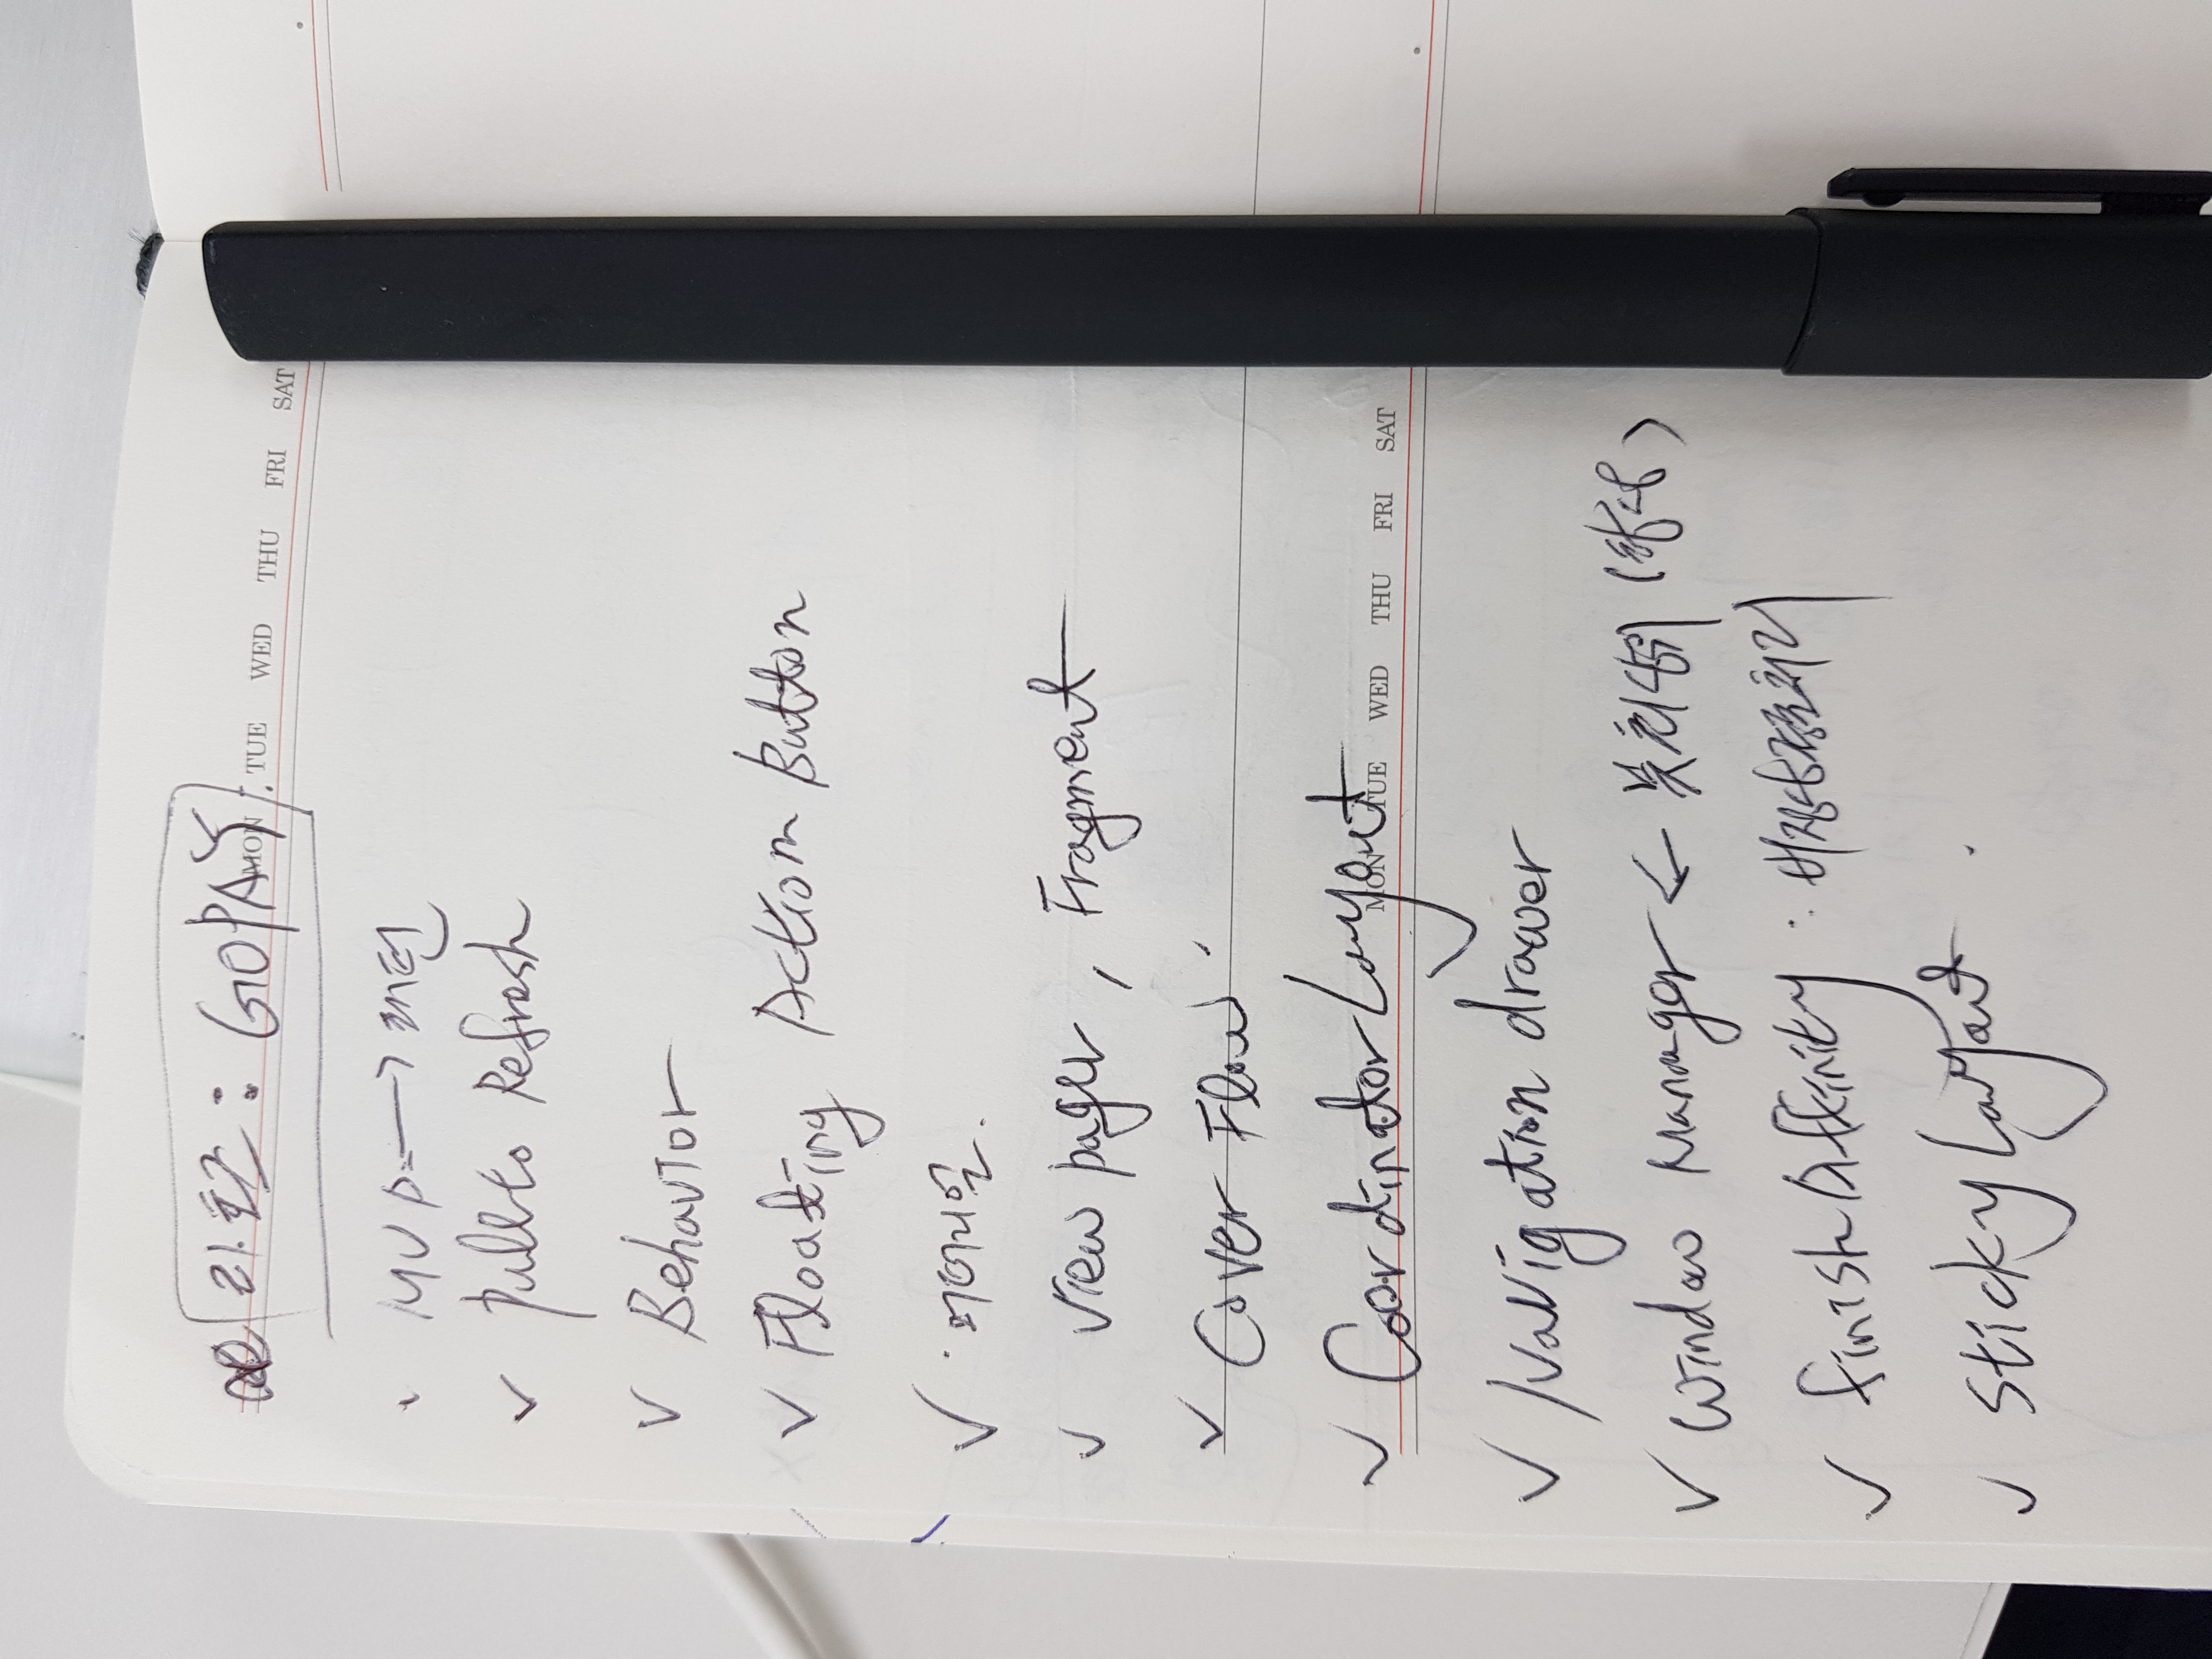 라훗 : GOPAY.
MON TUE WED THU FRI SAT
MVP → 패턴
✓ Pull to Refresh
✓ Behavior
✓ Floating Action Button
✓ 머터리얼.
✓ View pager, Fragment
✓ Cover Flow
✓ Coordinator Layout
MON TUE WED THU FRI SAT
✓ Navigation drawer
✓ Window Manager ← (항상)
✓ finishAffinity : 비정상종료처리
✓ Sticky Layout